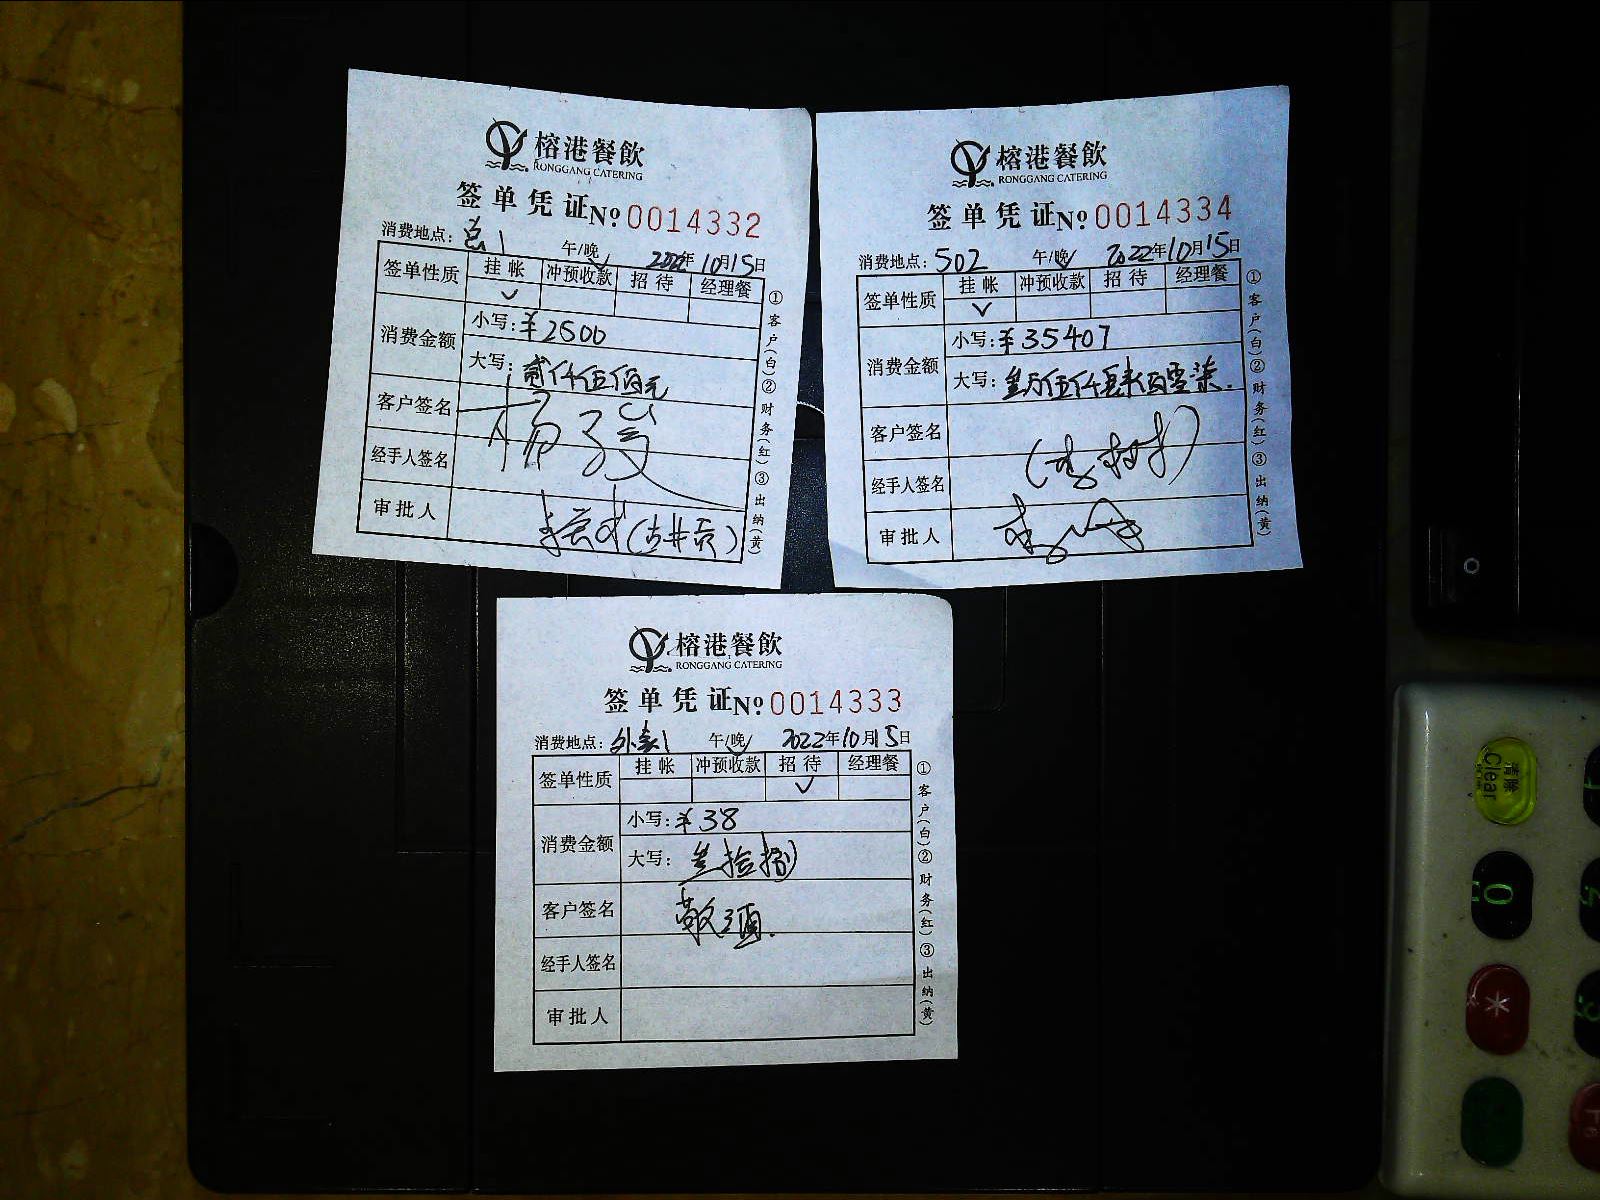 榕港餐飲
RONGGANG CATERING
签单凭证 No 0014332
消费地点：总1 午/晚 2022年10月15日
签单性质 挂帐 冲预收款 招待 经理餐
✓
消费金额 小写：¥2500
大写：贰仟伍佰元
客户签名
经手人签名
审批人
①客户(白)②财务(红)③出纳(黄)
榕港餐飲
RONGGANG CATERING
签单凭证 No 0014334
消费地点：502 午/晚 2022年10月15日
签单性质 挂帐 冲预收款 招待 经理餐
✓
消费金额 小写：¥35407
大写：叁万伍仟肆百零柒.
客户签名
经手人签名
审批人
①客户(白)②财务(红)③出纳(黄)
榕港餐飲
RONGGANG CATERING
签单凭证 No 0014333
消费地点：外卖1 午/晚 2022年10月15日
签单性质 挂帐 冲预收款 招待 经理餐
✓
消费金额 小写：¥38
大写：叁拾捌
客户签名 敬酒.
经手人签名
审批人
①客户(白)②财务(红)③出纳(黄)
清除
Clear
0
*